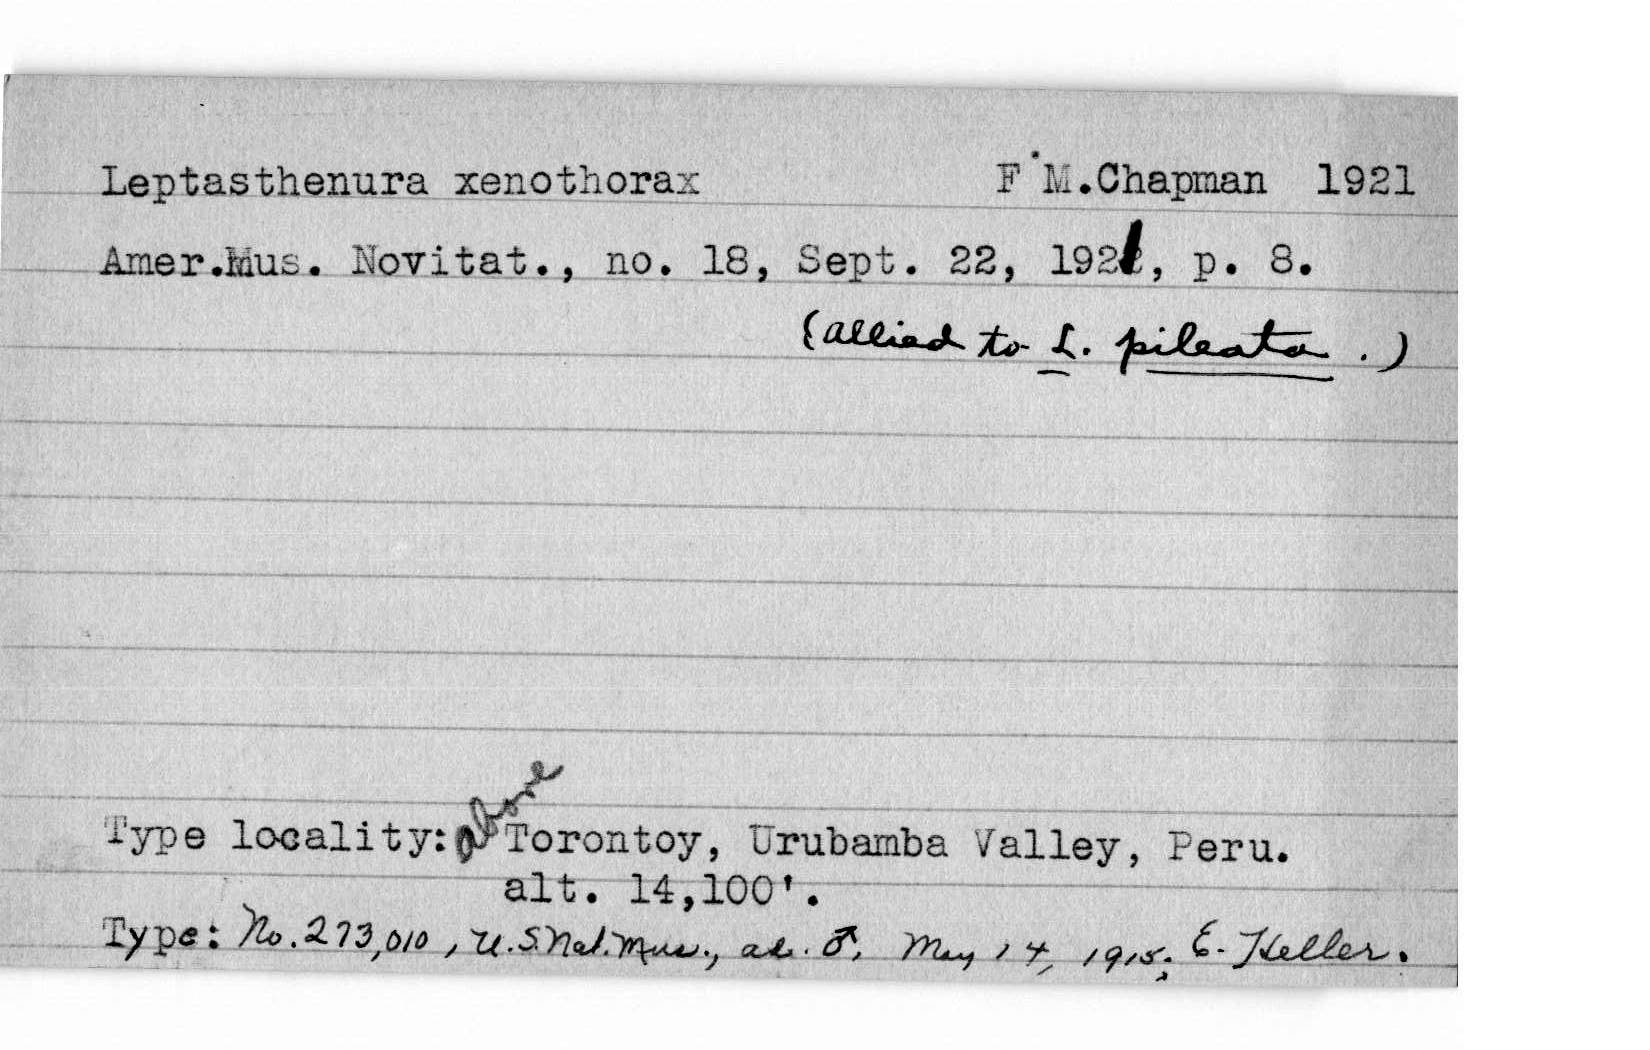 Leptasthenura xenothorax F. M.Chapman 1921
Amer.Mus. Novitat., no. 18, Sept. 22, 1921, p. 8.
(allied to L. pileata.)
Type locality: above Torontoy, Urubamba Valley, Peru.
alt. 14,100'.
Type: No. 273,010, U.S. Nat. Mus., ad. ♂, May 14, 1915; E. Heller.